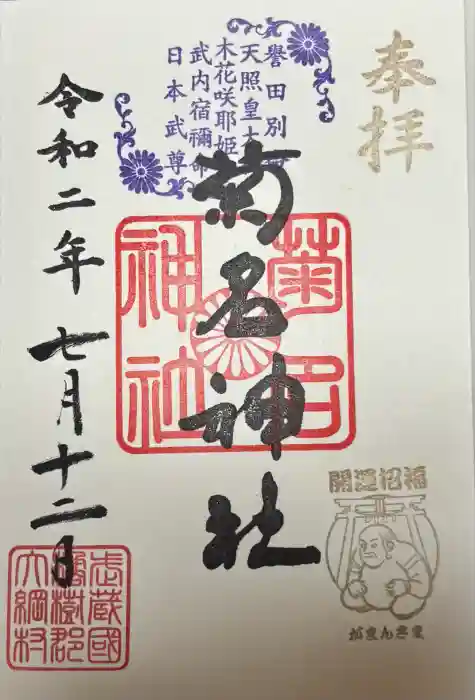 奉拝
誉田別命
天照皇大
木花咲耶姫
武内宿禰命
日本武尊
菊名神社
菊名
神社
令和二年七月十二日
開運招福
がまんさま
武蔵國
橘樹郡
大綱村